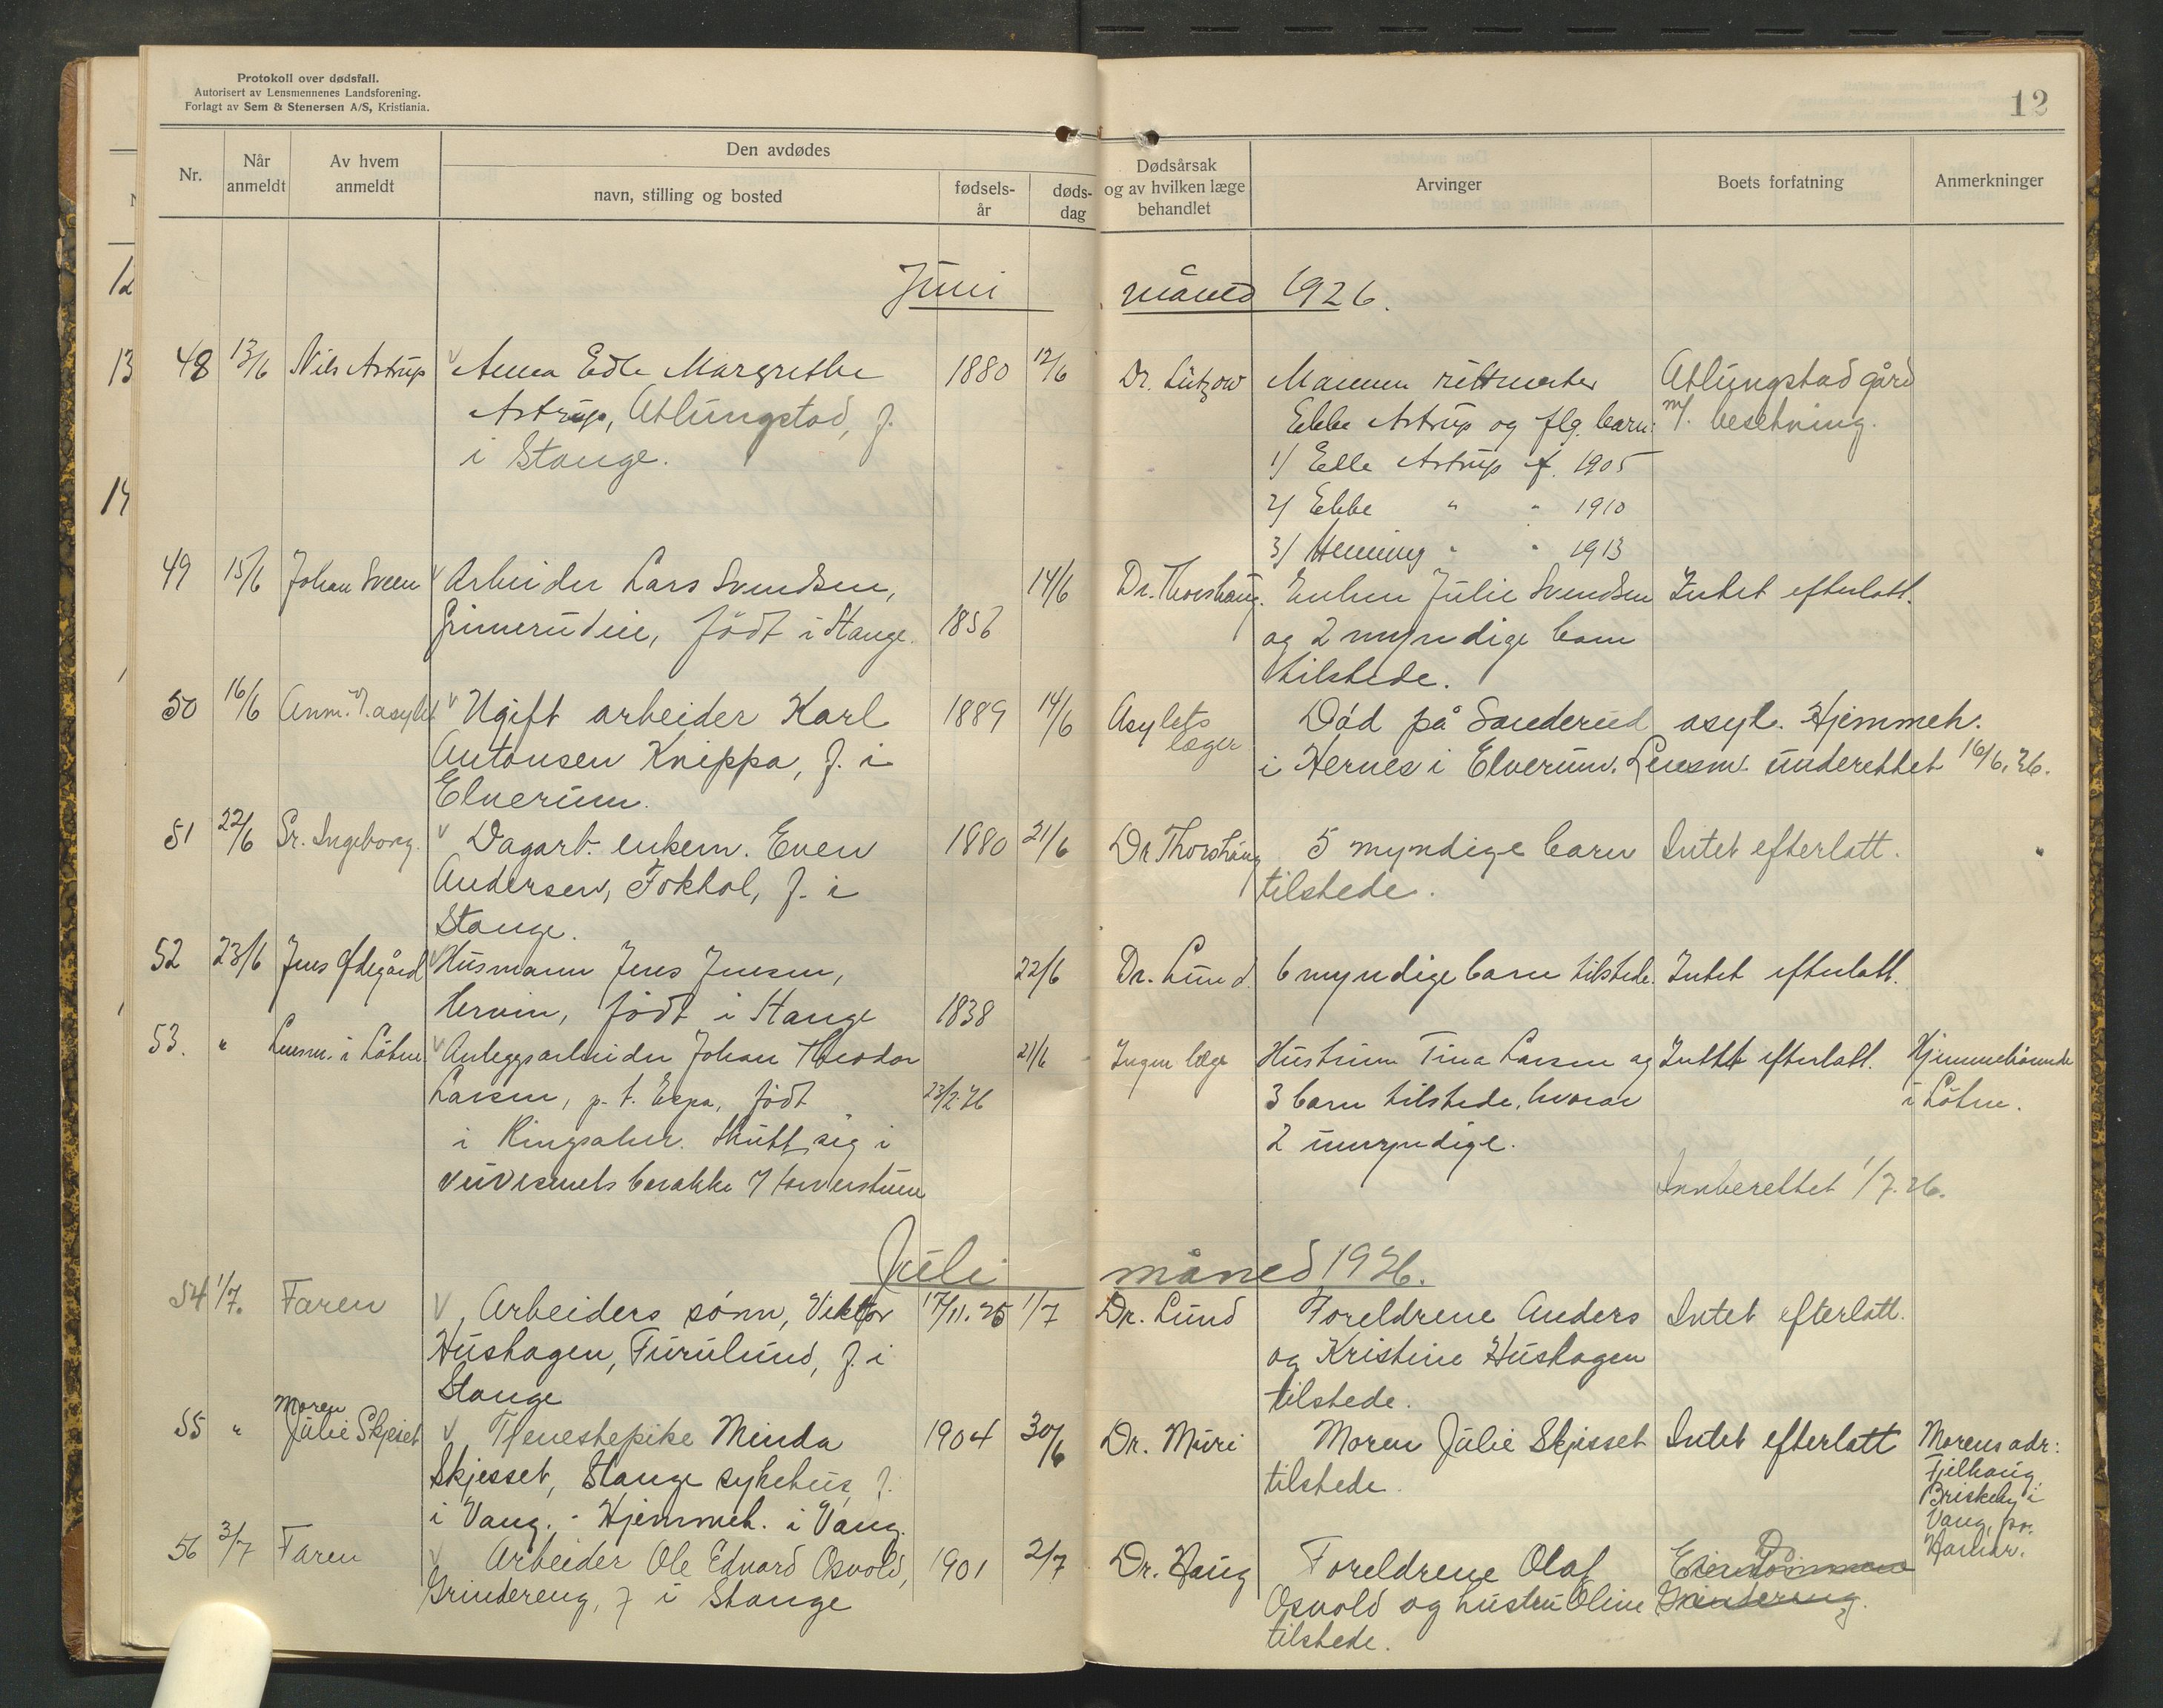 Protokoll over dødsfall.
Autorisert av Lensmennenes Landsforening.
Forlagt av Sem & Stenersen A/S, Kristiania.
12
Nr. Når anmeldt Av hvem anmeldt Den avdødes navn, stilling og bosted fødsels-år døds-dag Dødsårsak og av hvilken læge behandlet Arvinger Boets forfatning Anmerkninger
Juni måned 1926.
48 13/6 Nils Astrup v Anna Edle Margrethe 1880 12/6 Dr. Lützow Mannen rittmester Atlungstad gård
Astrup, Atlungstad, f. Ebbe Astrup og flg. barn: m/. besetning.
i Stange. 1/ Edle Astrup f. 1905
2/ Ebbe " " 1910
3/ Henning " " 1913
49 15/6 Johan Sveen v Arbeider Lars Svendsen, 14/6 Dr. Thorshaug. Enken Julie Svendsen Intet efterlatt.
Grimerudeie, født i Stange. 1856 og 2 myndige barn
tilstede.
50 16/6 Anm. v/. asylet v Ugift arbeider Karl 1889 14/6 Asylets Død på Sanderud asyl. Hjemmeh.
Antonsen Knippa, f. i læger i Hernes i Elverum. Lensm. underettet 16/6.26.
Elverum.
51 22/6 Sr. Ingeborg. v Dagarb. enkem. Even 1880 21/6 Dr Thorshaug 5 myndige barn Intet efterlatt.
Andersen, Fokhol, f. i tilstede.
Stange.
52 23/6 Jens Ødegård v Husmann Jens Jensen, 22/6 Dr. Lund 6 myndige barn tilstede. Intet efterlatt.
født i Stange 1838
53. " Lensm. i Løten v Anleggsarbeider Johan Theodor 21/6 Ingen læge Hustruen Tina Larsen og Intet efterlatt. Hjemmehørende
Larsen, p. t. Espa, født 23/2.76 3 barn tilstede, hvorav i Løten.
i Ringsaker. Skutt sig i 2 umyndige.
veivesenets barakke
Innberettet 1/7.26.
Juli måned 1926.
54 1/7. Faren v Arbeiders sønn, Viktor 17/11.25 1/7 Dr. Lund Foreldrene Anders Intet efterlatt.
Hushagen, Furulund, f. i og Kristine Hushagen
Stange tilstede.
55 " Moren Julie Skjeset v Tjenestepike Minda 1904 30/6 Dr. Muri Moren Julie Skjesset Intet efterlatt Morens adr:
Skjesset, Stange sykehus, f. tilstede. Fjelhaug
i Vang. - Hjemmeh. i Vang. Briskeby i
Vang, pr.
Hamar.
56 3/7 Faren v Arbeider Ole Edvard Osvold, 1901 2/7 Dr. Haug Foreldrene Olaf Eiendommen
Grindereng, f i Stange Osvold og hustru Oline Grindereng.
tilstede.